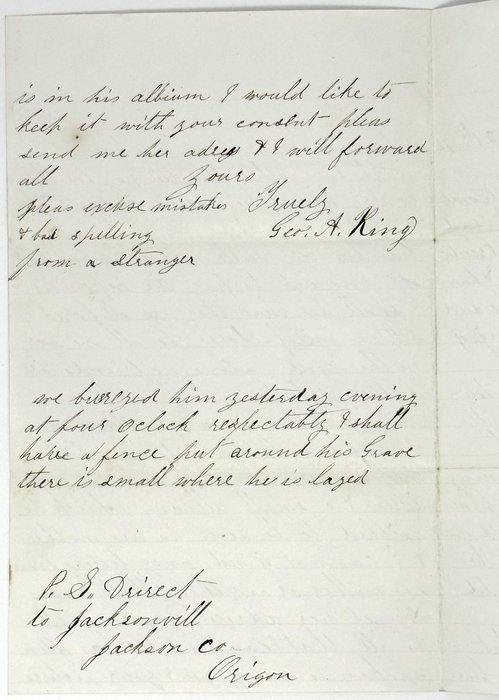 is in his albium I would like to
keep it with your consent pleas
send me her adres & I will forward
all yours
pleas excuse mistakes Truely
& bad spelling Geo. A. King
from a stranger
we burryed him yesterday evening
at four oclock respectably I shall
have a fence put around his Grave
there is small where he is layed
P. S. Drirect
to Jacksonvill
Jackson co
Origon